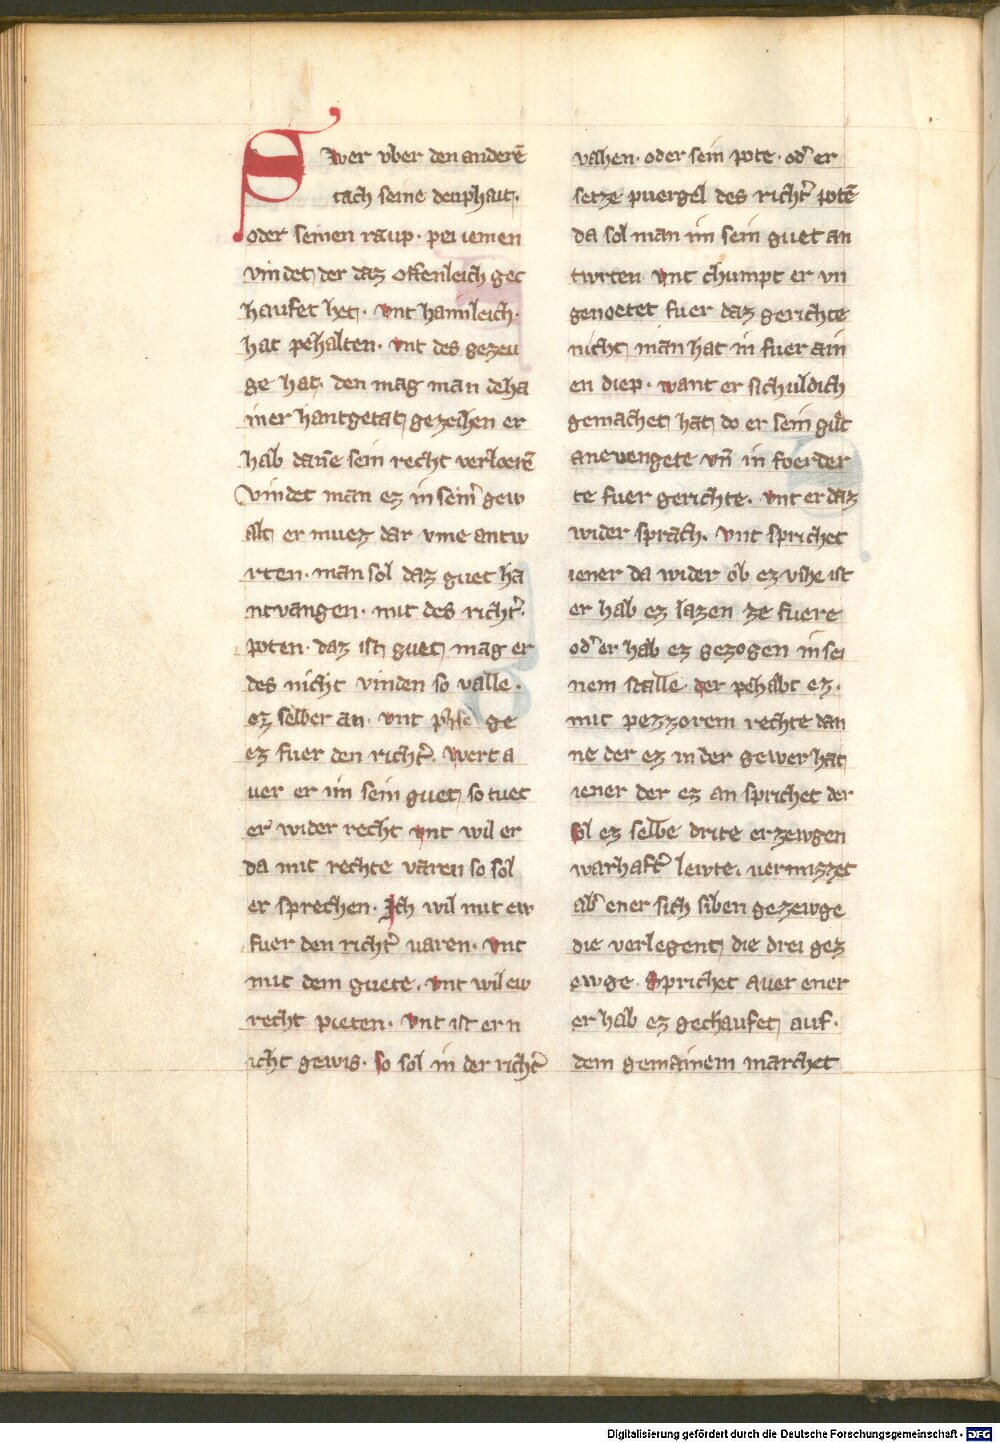 Swer vber den anderē
tach seine deuphait.
oder seinen raup. pei iemen
vindet der daz offenleich gec
haufet het. vnt haimleich.
hat pehalten. vnt des gezeu
ge hat. den mag man deha
iner hantgetat gezeihen er
hab daūe sein recht verloerē
Vindet man ez in seinˀ gew
alt er muez dar vme antw
rten. man sol daz guet ha
ntvangen. mit des richtˀ.
poten. daz ist guet mag er
des nicht vinden so valle.
ez selber an. vnt ge
ez fuer den richtˀ. wert a
uer er im sein guet so tuet
er wider recht vnt wil er
da mit rechte varen so sol
er sprechen. Ich wil mit ew
fuer den richtˀ uaren. vnt
mit dem guete. vnt wil ew
recht pieten. Vnt ist er n
icht gewis. so sol in der richtˀ
vahen. oder sein pote. odˀ er
setze puergel des richtˀ potē
da sol man im sein guet an
twrten vnt chumpt er vn
genoetet fuer daz gerichte
nicht man hat in fuer ain
en diep. want er sichuldich
gemachet hat do er sein guͤt
anevengete vn̄ in foerder
te fuer gerichte. vnt er daz
wider sprach. vnt sprichet
iener da wider ob ez vihe ist
er hab ez lazen ze fuere
odˀ er hab ez gezogen in sei
nem stalle. der pehabt ez.
mit pezzorem rechte dan
ne der ez in der gewer hat
iener der ez an sprichet der
sol ez selbe drite erzewgen
warhaftˀ lewte. uermizzet
abˀ ener sich siben gezewge
die verlegent die drei gez
ewge. sprichet auer ener
er hab ez gechaufet auf.
dem gemainem marchet
Digitalisierung gefördert durch die Deutsche Forschungsgemeinschaft - DFG